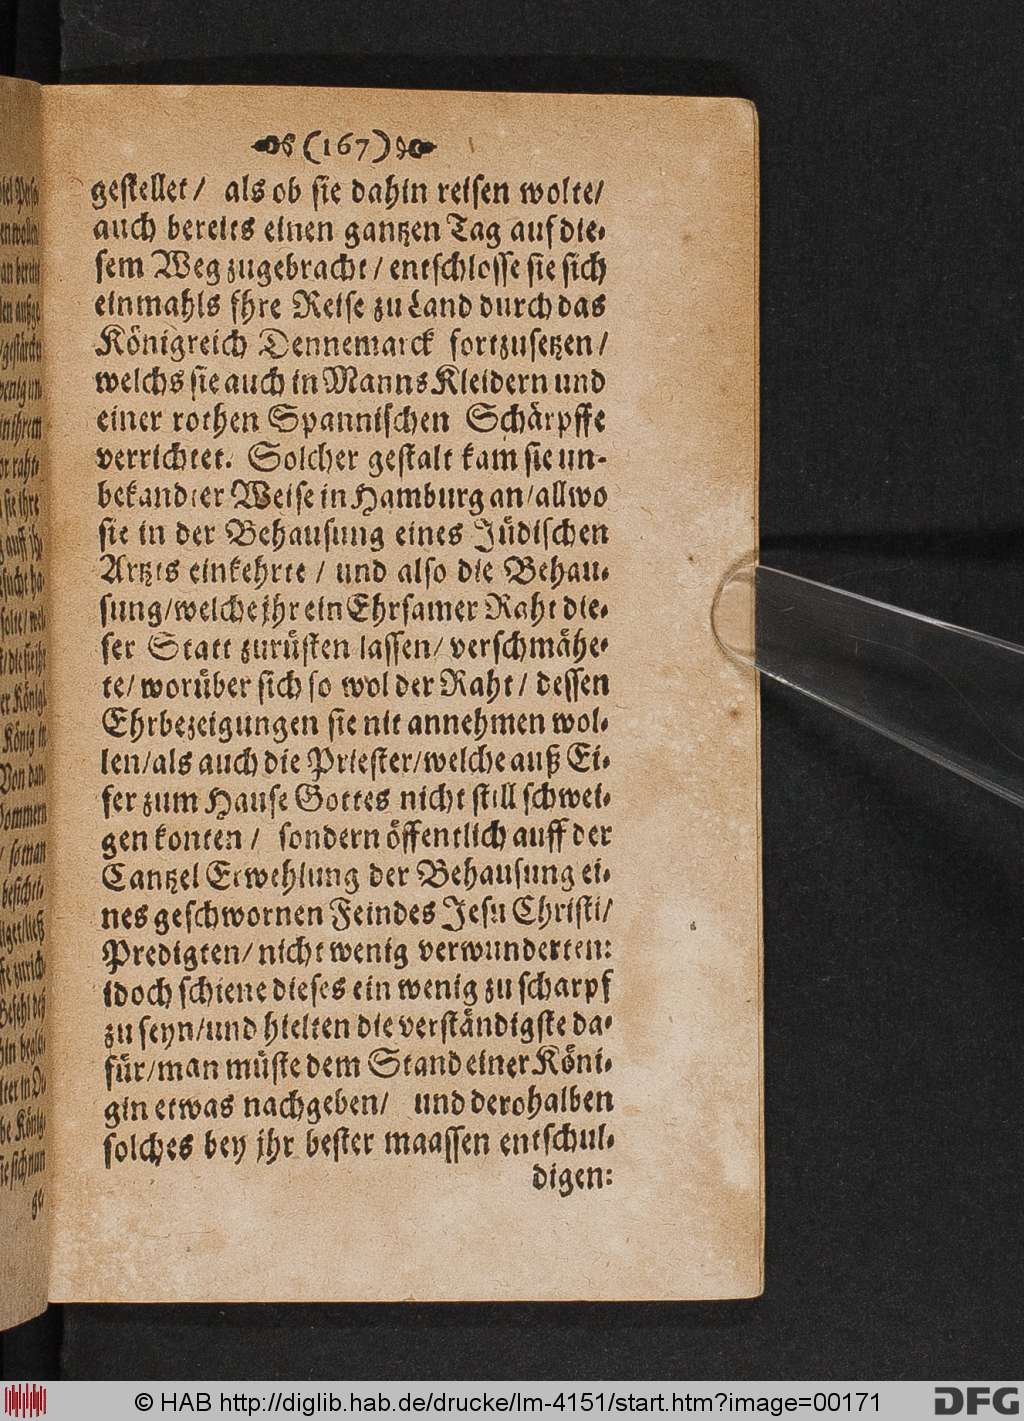 (167)
gestellet/ als ob sie dahin reisen wolte/
auch bereits einen gantzen Tag auf die-
sem Weg zugebracht/ entschlosse sie sich
einmahls jhre Reise zu Land durch das
Königreich Dennemarck fortzusetzen/
welchs sie auch in Manns Kleidern und
einer rothen Spannischen Schärpffe
verrichtet. Solcher gestalt kam sie un-
bekandter Weise in Hamburg an/ allwo
sie in der Behausung eines Jüdischen
Artzts einkehrte/ und also die Behau-
sung/ welche jhr ein Ehrsamer Raht die-
ser Statt zurüsten lassen/ verschmähe-
te/ worüber sich so wol der Raht/ dessen
Ehrbezeigungen sie nit annehmen wol-
len/ als auch die Priester/ welche auß Ei-
fer zum Hause Gottes nicht still schwei-
gen konten/ sondern öffentlich auff der
Cantzel Erwehlung der Behausung ei-
nes geschwornen Feindes Jesu Christi/
Predigten/ nicht wenig verwunderten:
idoch schiene dieses ein wenig zu scharpf
zu seyn/ und hielten die verständigste da-
für/ man müste dem Stand einer Köni-
gin etwas nachgeben/ und derohalben
solches bey jhr bester maassen entschul-
digen:
© HAB http://diglib.hab.de/drucke/lm-4151/start.htm?image=00171
DFG